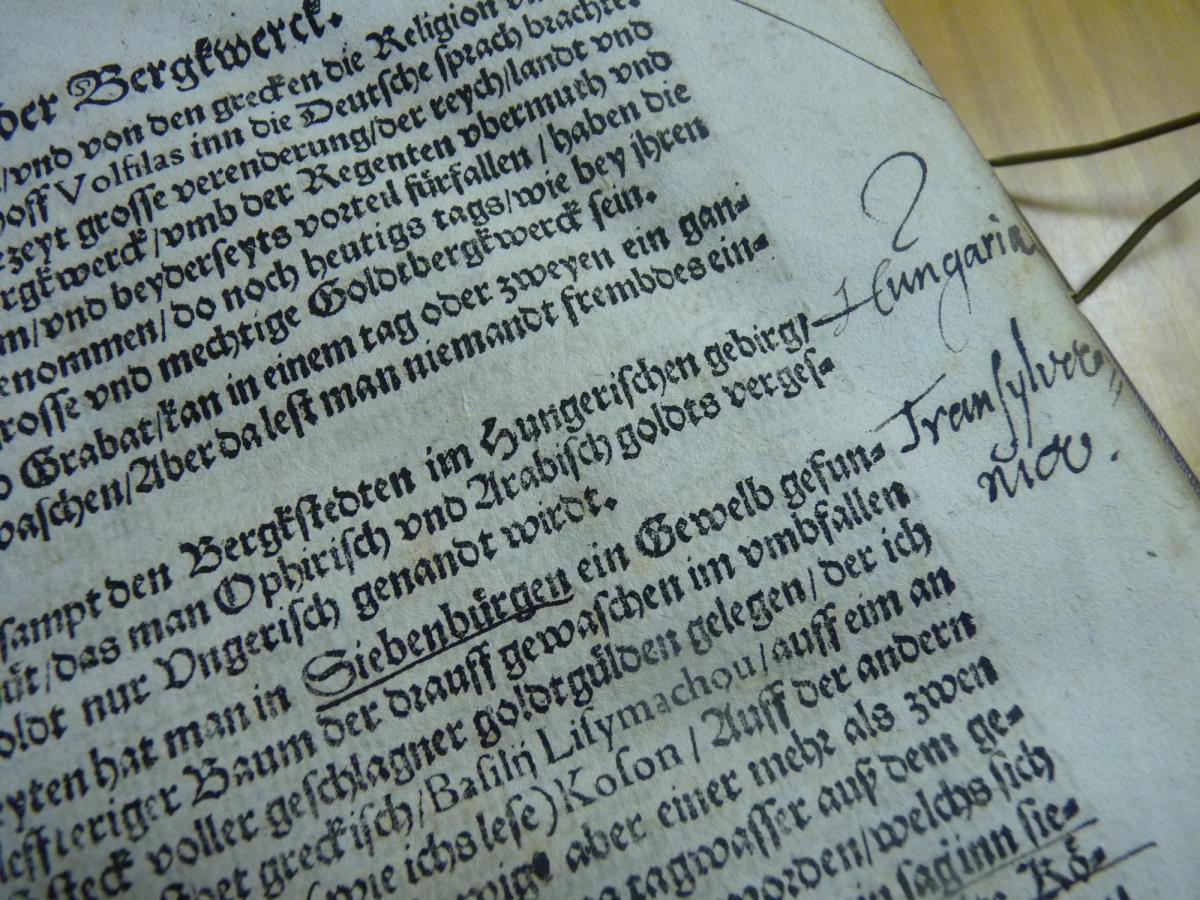 der Bergkwerck.
/vnd von den grecken die Religion
hoff Volfilas inn die Deutsche sprach brachte.
zeyt grosse verenderung/der reych/landt vnd
rgkwerck/vmb der Regenten vbermuth vnd
/vnd beyderseyts vorteil fürfallen/haben die
enommen/do noch heutigs tags/wie bey jhren
rosse vnd mechtige Goldtbergkwerck sein.
Grabat/kan in einem tag oder zweyen ein gan-
waschen/Aber da lest man niemandt frembdes ein-
sampt den Bergkstedten im Hungerischen gebirg/
Hungaria
/das man Ophirisch vnd Arabisch goldts verges-
oldt nur Vngerisch genandt wirdt.
yten hat man in Siebenbürgen ein Gewelb gefun-
Transylva
nia.
eriger Baum der drauff gewaschen im vmbfallen
steck voller geschlagner goldtgülden gelegen/der ich
greckisch/Basilij Lisymachou/auff eim an
(wie ichs lese) Koson/Auff der andern
wigt aber einer mehr als zwen
tagwasser auß dem ge-
worden/welchs sich
saginn sie-
Kö-